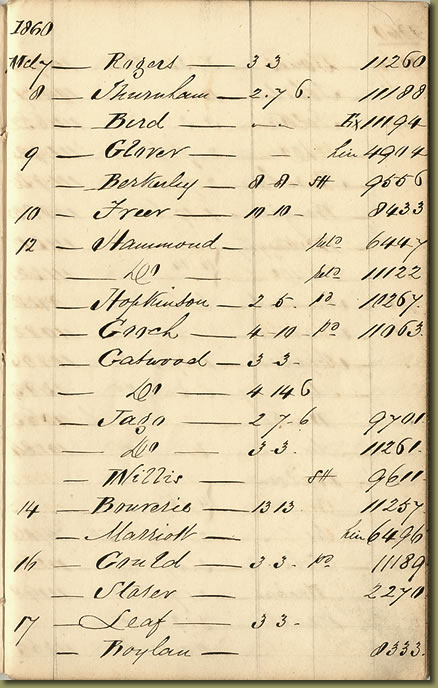 1860
Mch 7 — Rogers — 3 3 11260
8 — Thurnham — 2. 7 6. 11188
— Bird — - - Ex 11194
9 — Glover — - Lin 4914
— Berkerley — 8 8 - SH 9556
10 — Freer — 10 10 - 8433
12 — Hammond - 6447
— Do — 11122
— Hopkinson — 2 5. po 10267.
— Gooch — 4 - 10 - po 11063.
— Gatwood — 3 3 -
— Do — 4 14 6
— Jago — 2 7. 6 9701
— Do — 3 3. 11261.
— Willis — SH 9611.
14 — Bouverie — 13 13 11257
— Marriott — Lin 6496
16 — Gould — 3 3. po 11189
— — 2270
17 — Leaf — 3 3 -
— Boylau — 8333.